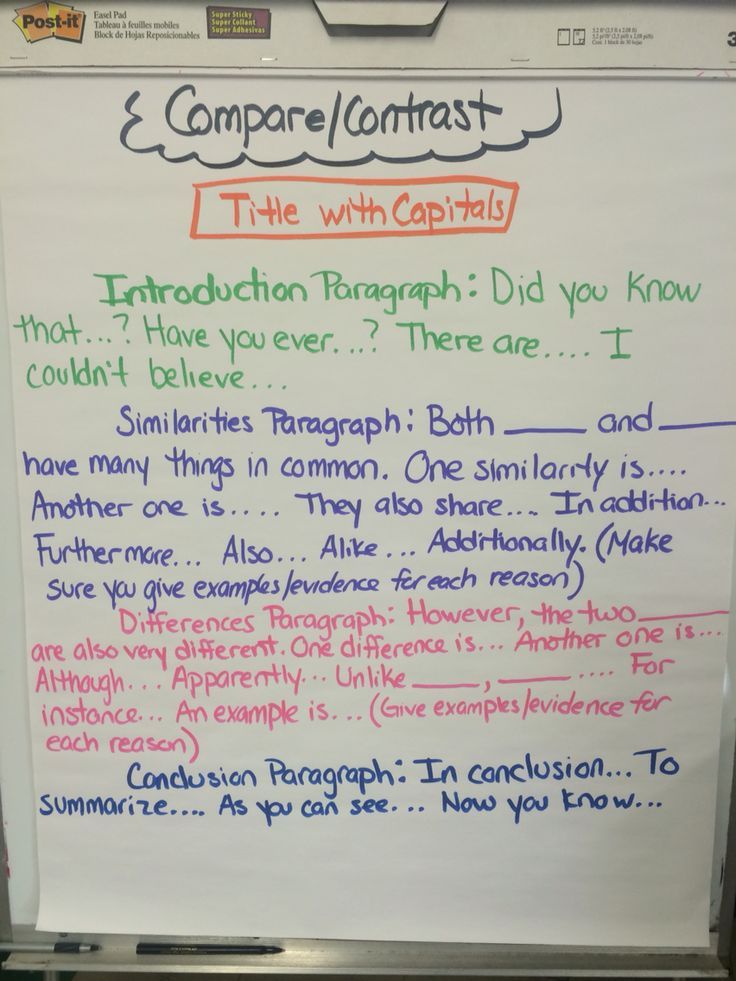 Post-it
Easel Pad
Tableau à feuilles mobiles
Block de Hojas Reposicionables
Super Sticky
Super Collant
Super Adhesivas
3
Compare/Contrast
Title with Capitals
Introduction Paragraph: Did you know
that...? Have you ever...? There are.... I
couldn't believe...
Similarities Paragraph: Both ____ and ____
have many things in common. One similarity is....
Another one is.... They also share.... In addition...
Furthermore... Also... Alike... Additionally. (Make
sure you give examples/evidence for each reason)
Differences Paragraph: However, the two ____
are also very different. One difference is... Another one is...
Although... Apparently... Unlike ____, ____ .... For
instance... An example is... (Give examples/evidence for
each reason)
Conclusion Paragraph: In conclusion... To
summarize.... As you can see.... Now you know...